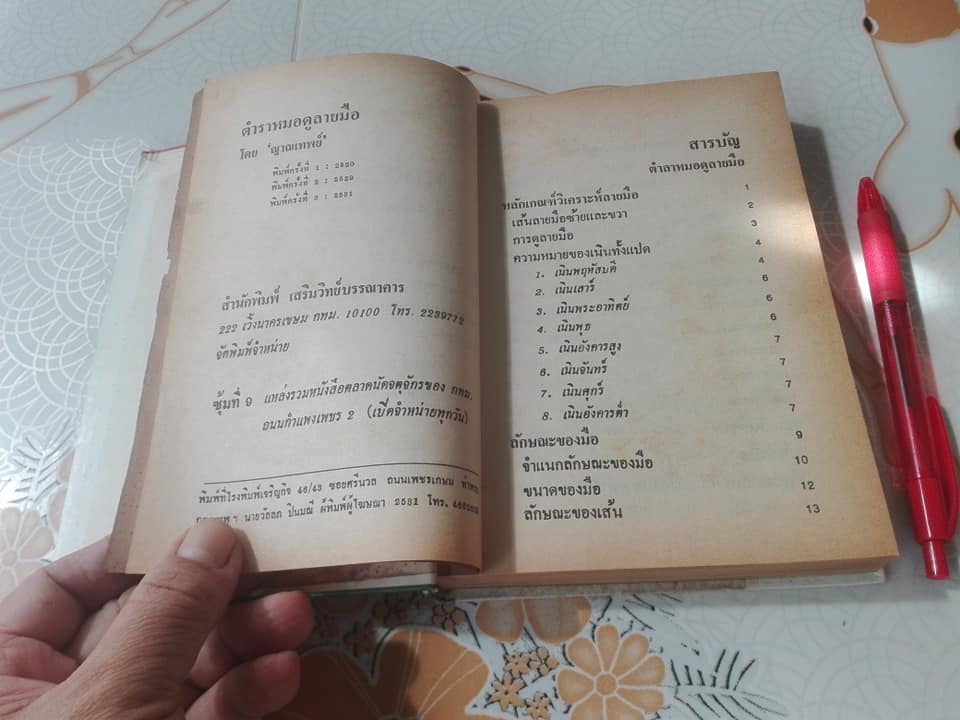 ตำราหมอดูลายมือ
โดย 'ญาณเทพย์'
พิมพ์ครั้งที่ 1 : 2520
พิมพ์ครั้งที่ 2 : 2529
พิมพ์ครั้งที่ 3 : 2531
สำนักพิมพ์ เสริมวิทย์บรรณาคาร
222 เวิ้งนาครเขษม กทม. 10100 โทร. 2239772
จัดพิมพ์จำหน่าย
ซุ้มที่ ๑ แหล่งรวมหนังสือตลาดนัดจตุจักรของ กทม.
ถนนกำแพงเพชร 2 (เปิดจำหน่ายทุกวัน)
พิมพ์ที่โรงพิมพ์เจริญกิจ 46/43 ซอยศรีนวล ถนนเพชรเกษม
นายวัลลภ ปิ่นมณี ผู้พิมพ์ผู้โฆษณา 2531 โทร.
สารบัญ
ตำลาหมอดูลายมือ
หลักเกณฑ์วิเคราะห์ลายมือ 1
เส้นลายมือซ้ายและขวา 2
การดูลายมือ 3
ความหมายของเนินทั้งแปด 4
1. เนินพฤหัสบดี 4
2. เนินเสาร์ 6
3. เนินพระอาทิตย์ 6
4. เนินพุธ 6
5. เนินอังคารสูง 7
6. เนินจันทร์ 7
7. เนินศุกร์ 7
8. เนินอังคารต่ำ 7
ลักษณะของมือ 9
จำแนกลักษณะของมือ 10
ขนาดของมือ 12
ลักษณะของเส้น 13